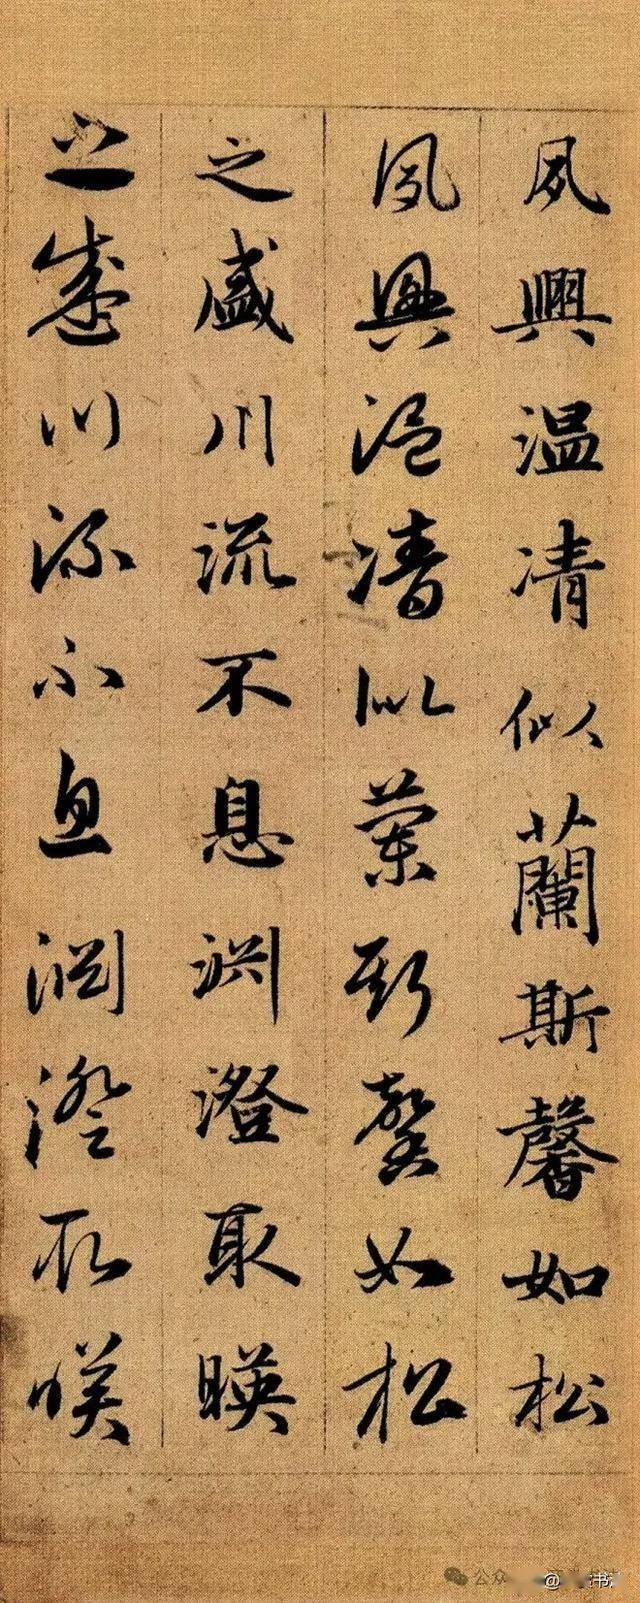 夙興温凊似蘭斯馨如松
夙興温凊似蘭斯馨如松
之盛川流不息淵澄取暎
之盛川流不息淵澄取暎
公众
@ 书